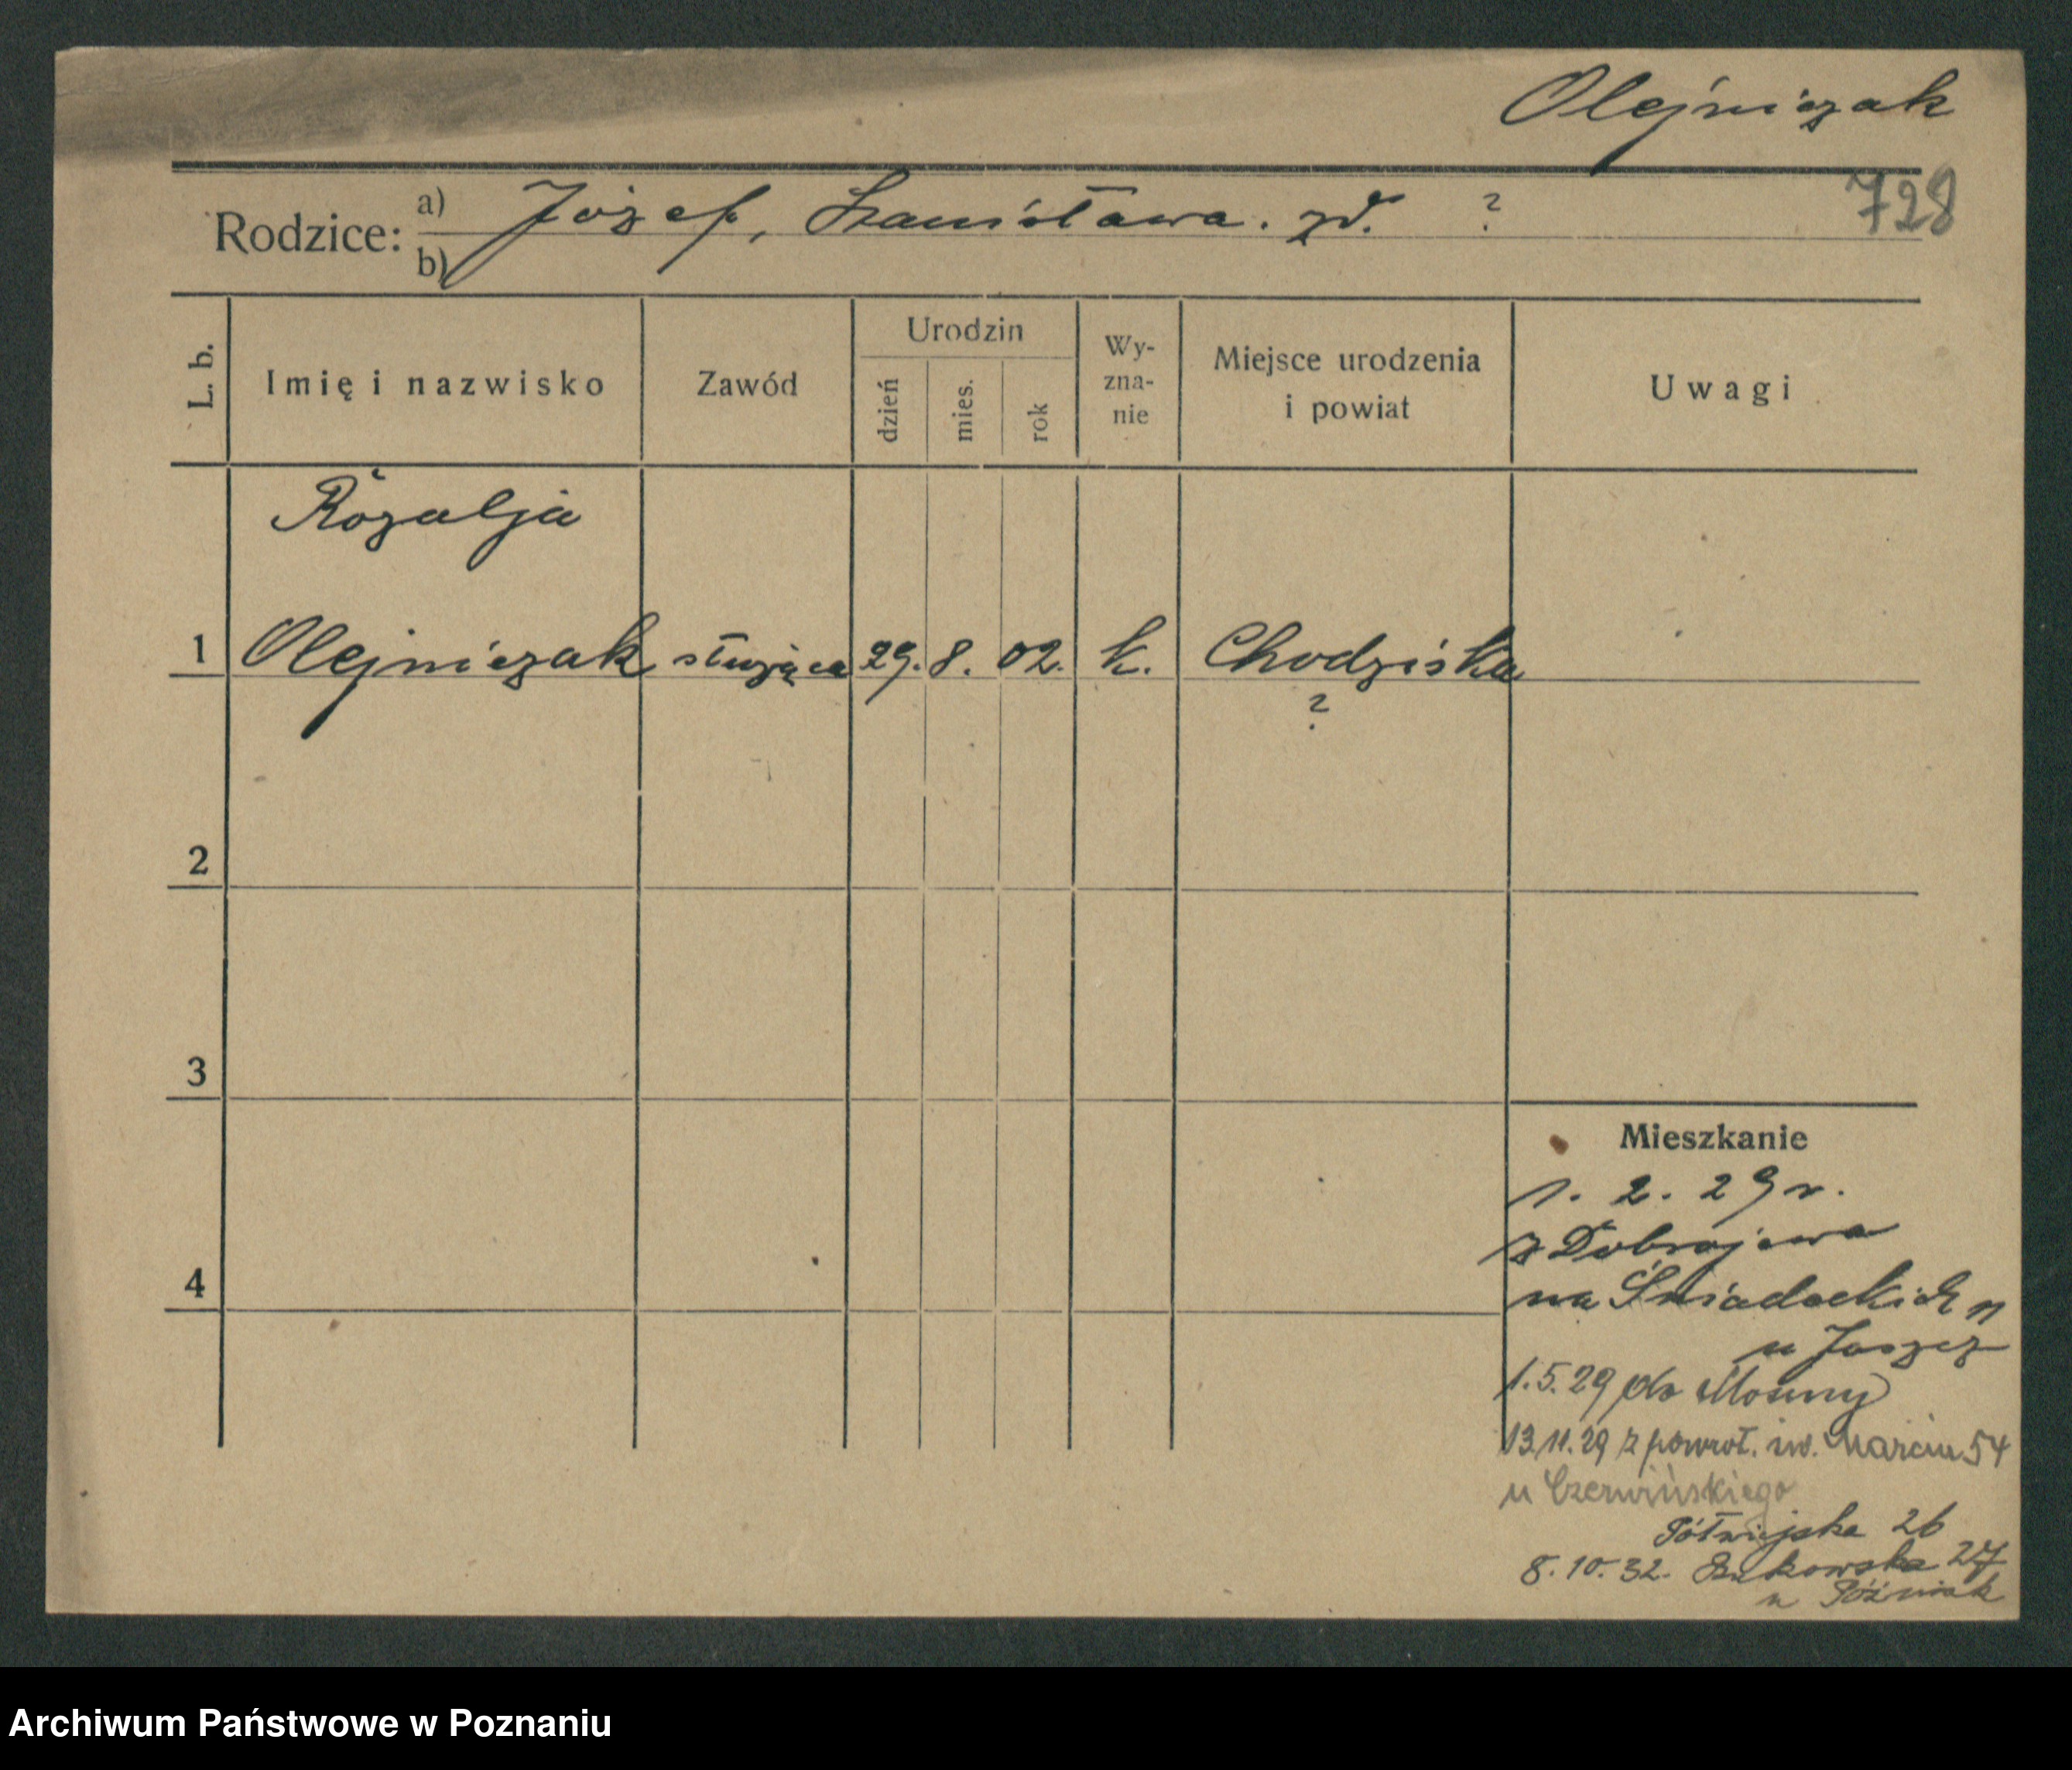 Olejniczak
728
Rodzice: a) Józef, Stanisława. zd. ?
b)
L. b.
Imię i nazwisko
Zawód
Urodzin
dzień
mies.
rok
Wy-
zna-
nie
Miejsce urodzenia
i powiat
Uwagi
Rozalja
1 Olejniczak służąca 29. 8. 02. k. Chodziska
?
2
3
4
Mieszkanie
1. 2. 29 r.
z Dobrojewa
na Śniadeckich 11
u
1.5.29 do Mosiny
13.11.29 z powrot. św. Marcin 54
u Czerwińskiego
Półwiejska 26
8.10.32. Bukowska 27
u Późniak
Archiwum Państwowe w Poznaniu